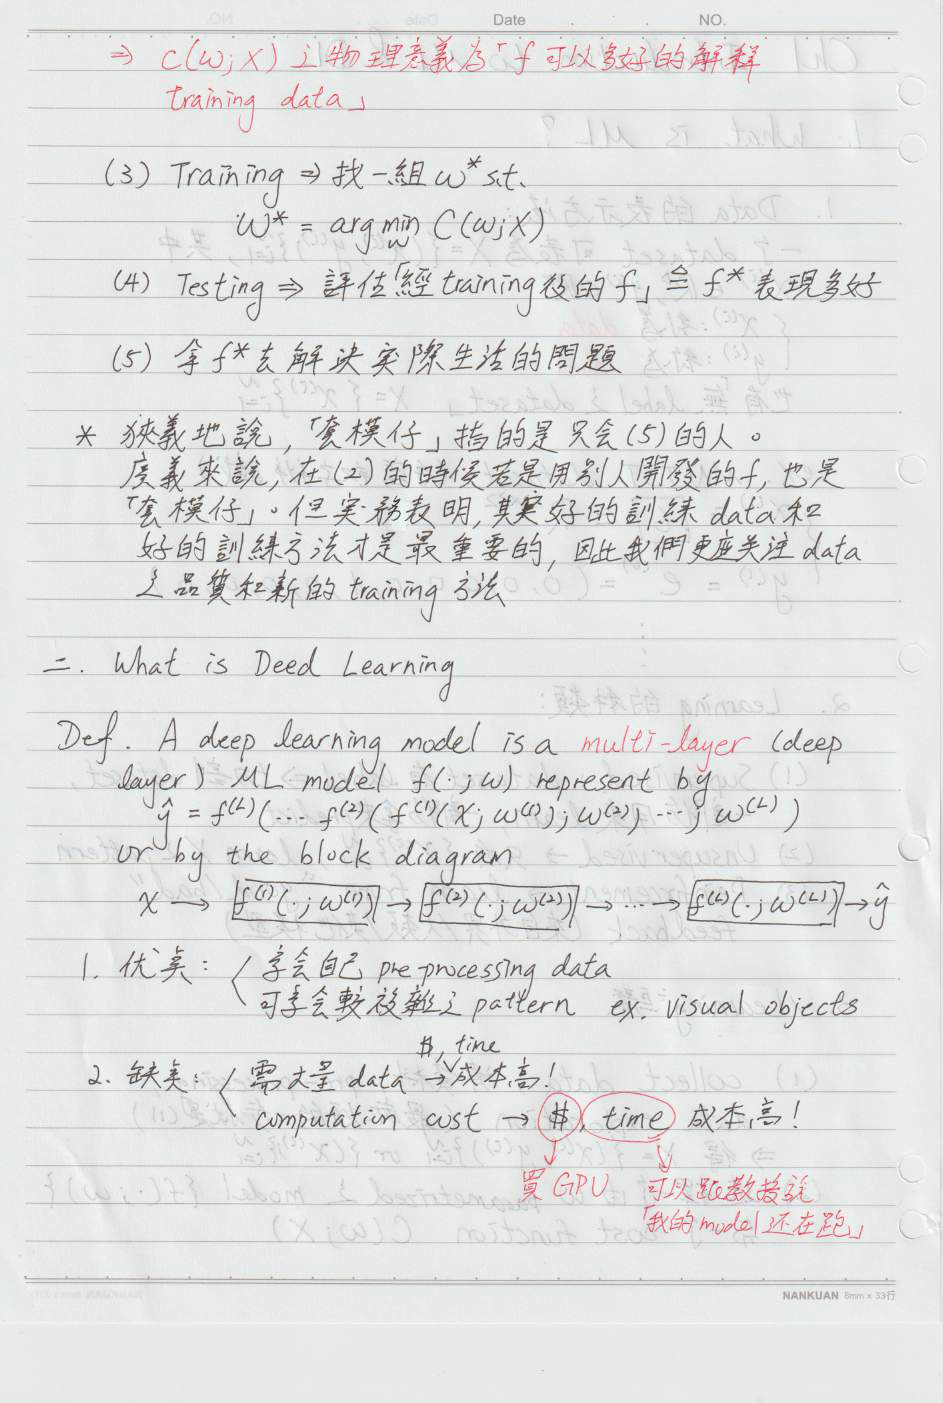 Date . . NO.
⇒ C(w;X) 之物理意義為「f 可以多好的解釋
training data」
(3) Training ⇒ 找一組 w* s.t.
w* = arg min_w C(w;X)
(4) Testing ⇒ 評估「經training後的f」≙ f* 表現多好
(5) 拿 f* 去解決实際生活的問題
* 狹義地說,「套模仔」指的是只会(5)的人。
廣義來說,在(2)的時候若是用別人開發的f,也是
「套模仔」。但实務表明,其実好的訓練 data 和
好的訓練方法才是最重要的,因此我們更應关注 data
之品質和新的 training 方法
二. What is Deed Learning
Def. A deep learning model is a multi-layer (deep
layer) ML model f(·;w) represent by
ŷ = f⁽ᴸ⁾(... f⁽²⁾(f⁽¹⁾(x; w⁽¹⁾); w⁽²⁾; ...; w⁽ᴸ⁾)
or by the block diagram
x → f⁽¹⁾(·;w⁽¹⁾) → f⁽²⁾(·;w⁽²⁾) → ... → f⁽ᴸ⁾(·;w⁽ᴸ⁾) → ŷ
1. 优矣: 学会自己 pre-processing data
可学会較複雜之 pattern ex. visual objects
$, time
2. 缺矣: 需大量 data → 成本高!
computation cost → $, time 成本高!
買 GPU 可以跟教授說
「我的model还在跑」
NANKUAN 8mm x 33行